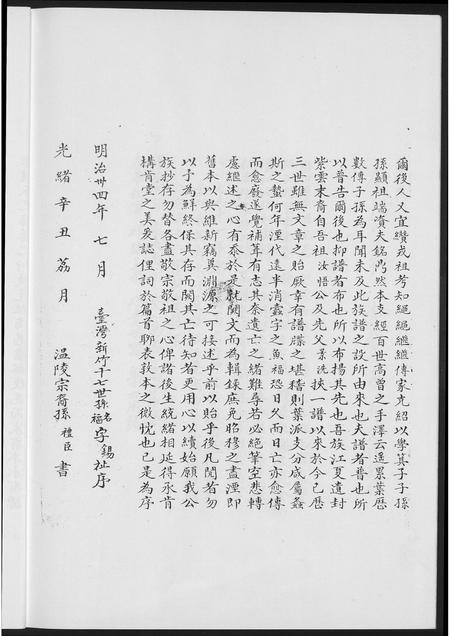 爾後人又宜纘戎祖考知繩繩繼繼傳家克紹以學箕子子孫
孫顯祖端資夫銘鳥然本支經百世高曾之手澤云遙累葉歷
數傳子孫為耳聞未及此族譜之設所由來也夫譜者普也所
以普告爾後也抑譜者布也所以布揚其先也吾族江夏遺封
紫雲衍裔自吾祖汝悟公及先父景洗挾一譜以來於今已歷
三世雖無文章之貽厥幸有譜牒之堪稽則葉派支分咸屬螽
斯之蟄何年湮代遠半消蠹字之魚福恐日久而日亡亦愈傳
而愈廢遂覺補葺有志其奈遺亡之緒難尋若必絕筆空悲轉
處繼述之心有忝於是就闕文而為輯錄庶免昭穆之盡湮即
舊本以與維新竊冀淵源之可接述乎前以貽乎後凡閱者勿
以予為鮮終係其存而闕其亡待知者更用心以續始願我公
族抄存勿替各盡敬宗敬祖之心俾諸後生統緒相延得永肯
構肯堂之美爰誌俚詞於篇首聊表敦本之微忱也已是為序
明治卅四年 七月 臺灣新竹十七世孫名福字錫祉序
光緒辛丑荔月 溫陵宗裔孫禮臣書